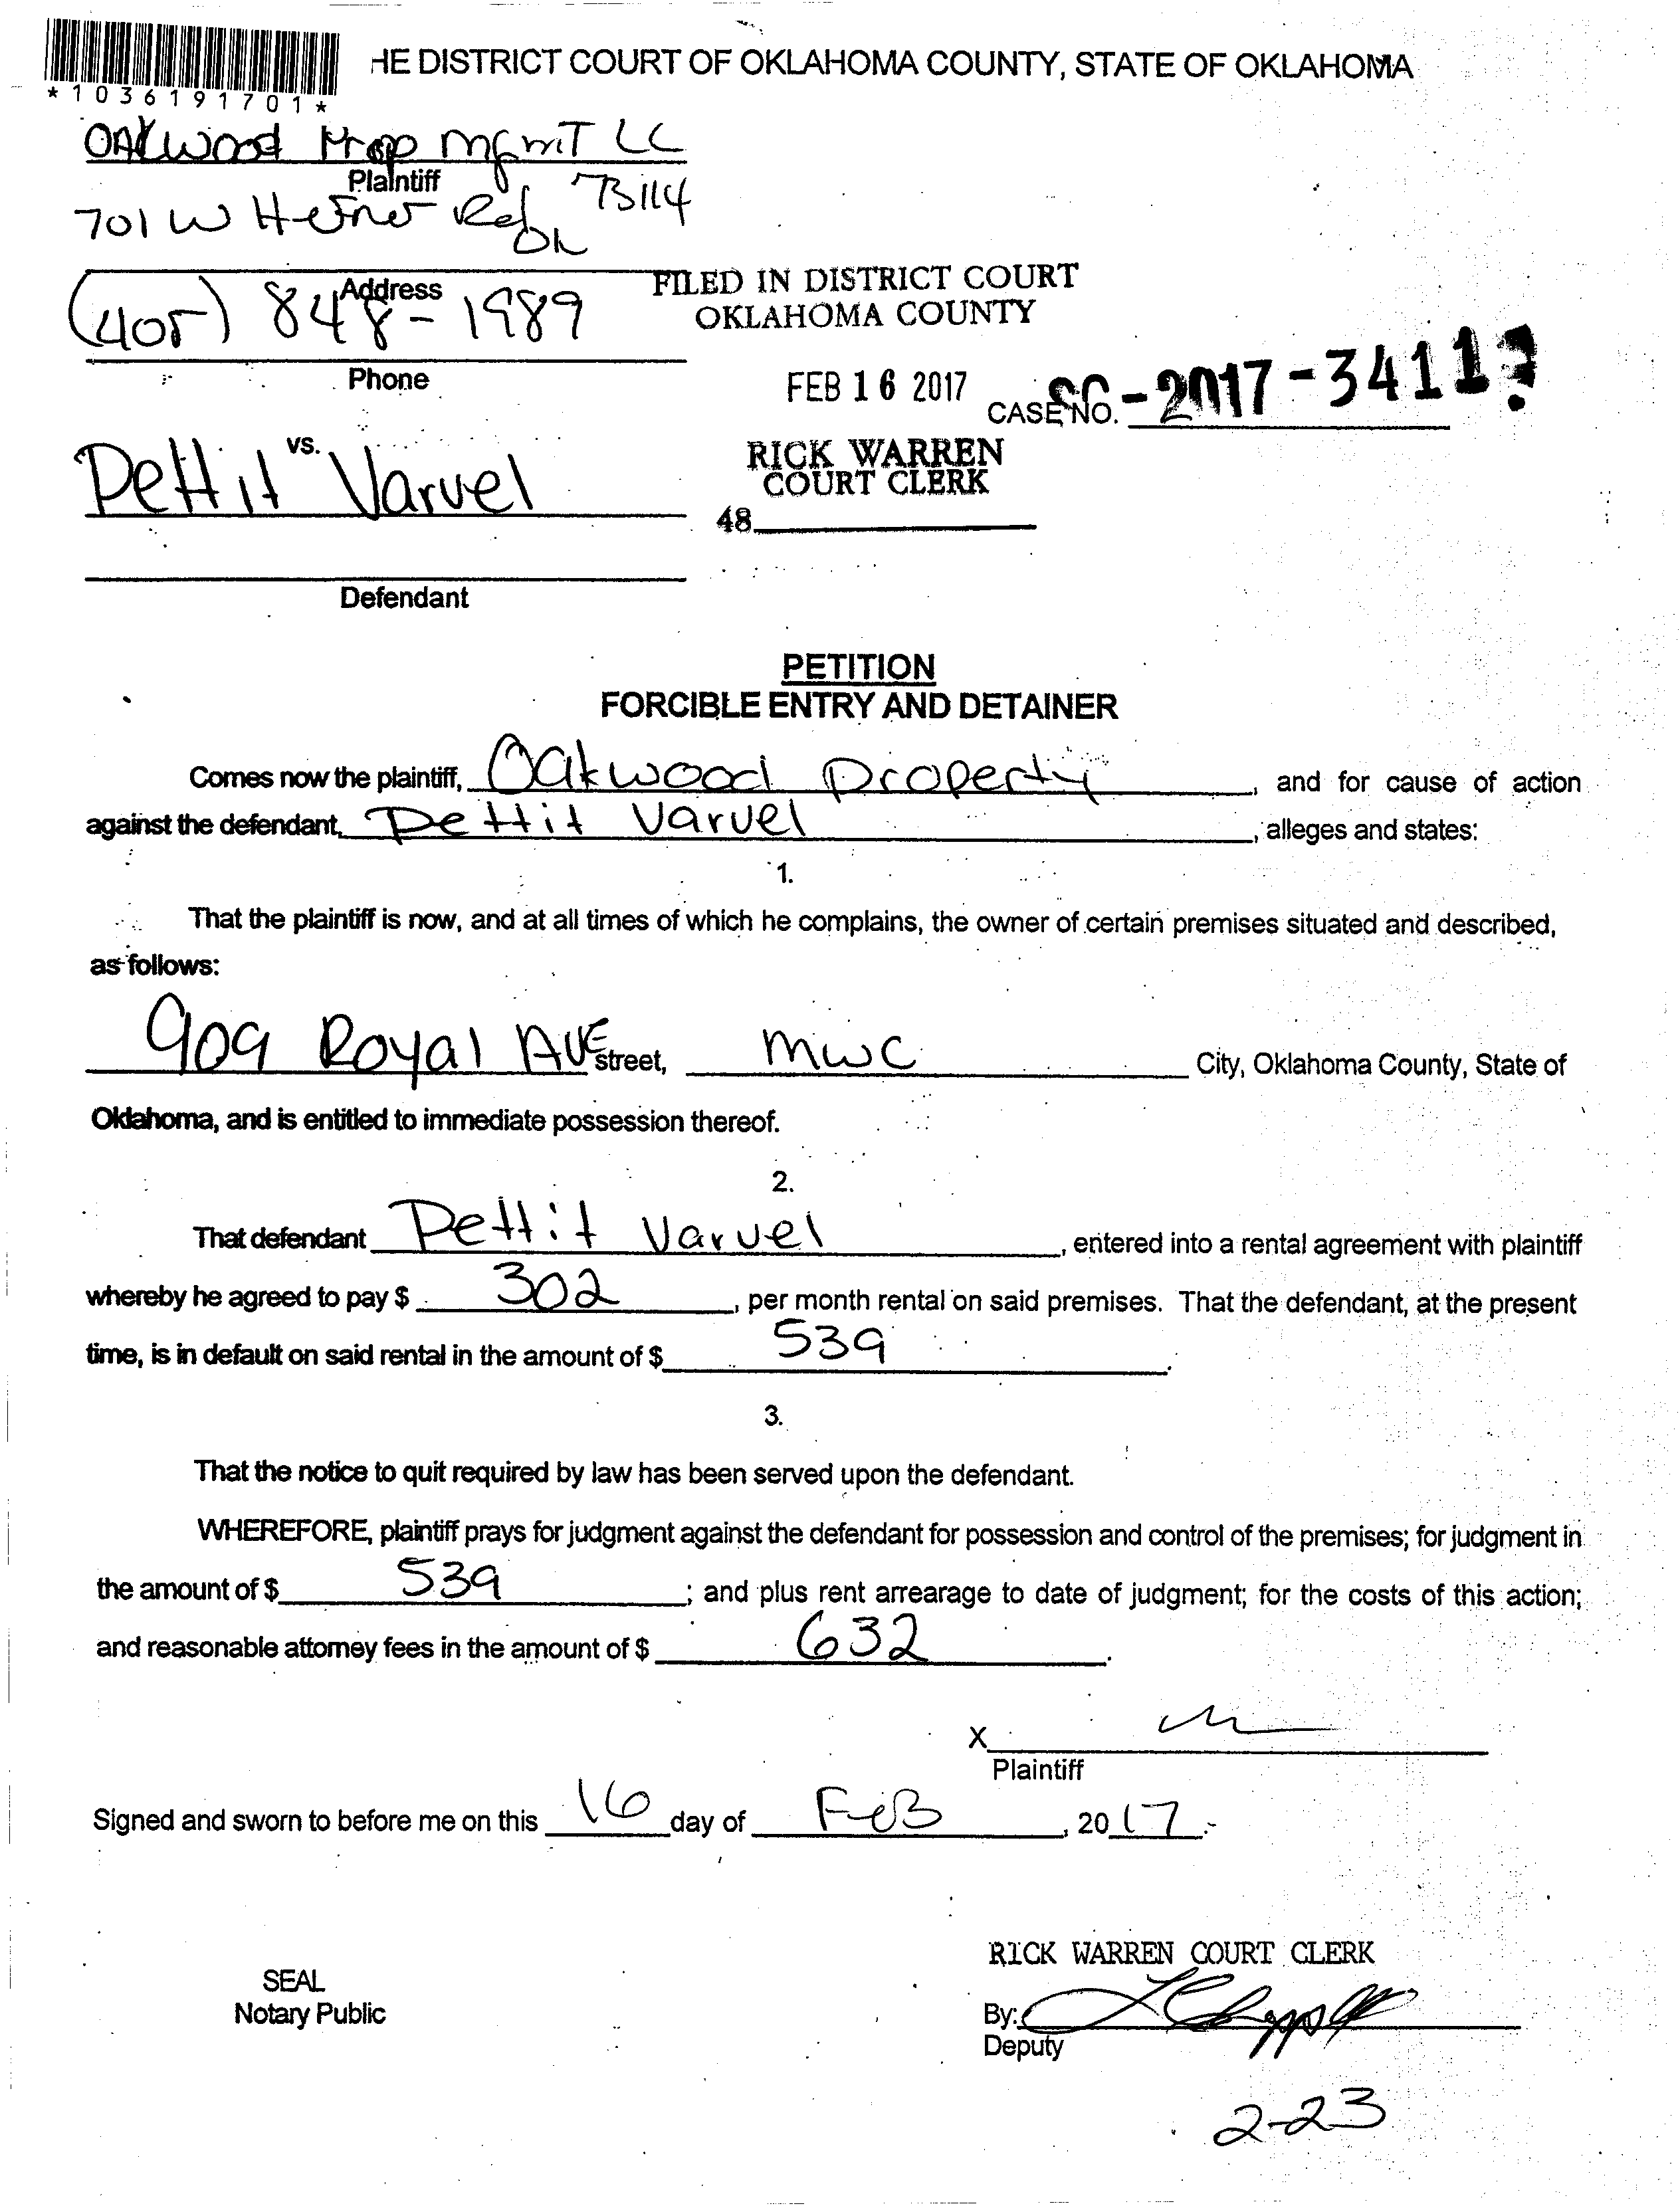 *1036191701*
HE DISTRICT COURT OF OKLAHOMA COUNTY, STATE OF OKLAHOMA
OAKwood Prop mgmT LC
Plaintiff
701 W Hefner Rd 73114
OK
Address
(405) 848-1989
Phone
FILED IN DISTRICT COURT
OKLAHOMA COUNTY
FEB 16 2017
CASE NO. SC-2017-3411
RICK WARREN
COURT CLERK
48
vs.
Pettit Varvel
Defendant
PETITION
FORCIBLE ENTRY AND DETAINER
Comes now the plaintiff, Oakwood Property, and for cause of action
against the defendant, Pettit Varvel, alleges and states:
1.
That the plaintiff is now, and at all times of which he complains, the owner of certain premises situated and described,
as follows:
909 Royal AVE street, MWC City, Oklahoma County, State of
Oklahoma, and is entitled to immediate possession thereof.
2.
That defendant Pettit Varvel, entered into a rental agreement with plaintiff
whereby he agreed to pay $ 302, per month rental on said premises. That the defendant, at the present
time, is in default on said rental in the amount of $ 539.
3.
That the notice to quit required by law has been served upon the defendant.
WHEREFORE, plaintiff prays for judgment against the defendant for possession and control of the premises; for judgment in
the amount of $ 539; and plus rent arrearage to date of judgment; for the costs of this action;
and reasonable attorney fees in the amount of $ 632.
X
Plaintiff
Signed and sworn to before me on this 16 day of FeB, 2017.
SEAL
Notary Public
RICK WARREN COURT CLERK
By:
Deputy
2-23